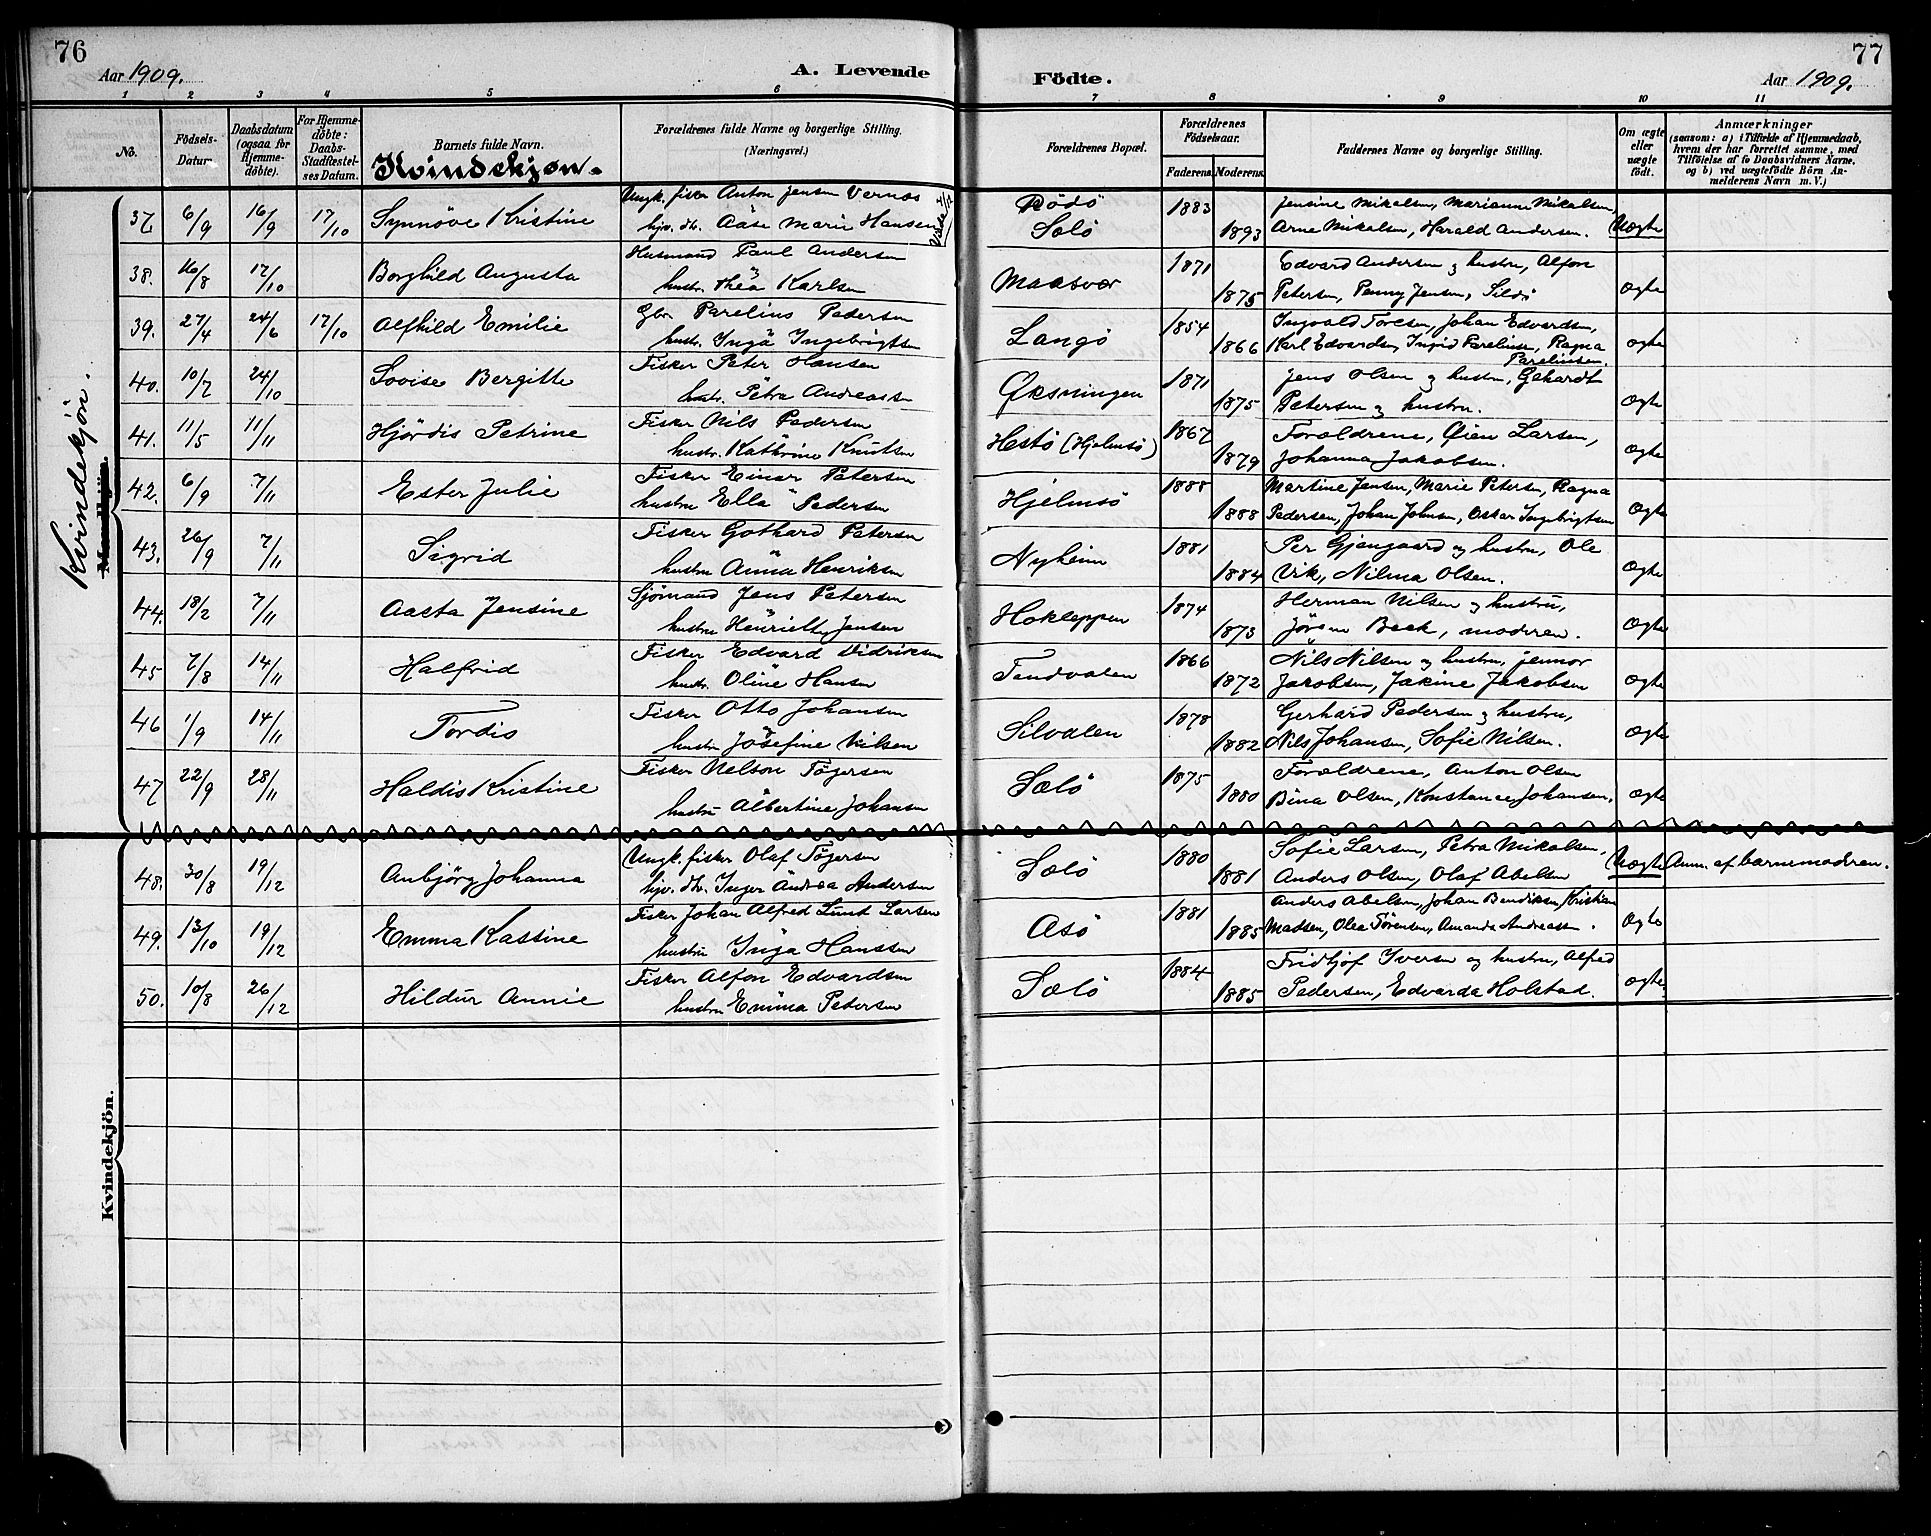 76
Aar 1909.
A. Levende
Födte.
77
Aar 1909.
1 2 3 4 5 6 7 8 9 10 11
No.
Födsels-Datum
Daabsdatum (ogsaa for Hjemmedöbte).
For Hjemmedöbte: Daabs-Stadfæstelses Datum.
Barnets fulde Navn.
Kvindekjøn.
Forældrenes fulde Navne og borgerlige Stilling.
(Næringsvei.)
Forældrenes Bopæl.
Forældrenes Födselsaar.
Faderens. Moderens.
Faddernes Navne og borgerlige Stilling.
Om ægte eller uægte födt.
Anmærkninger
(saasom: a) i Tilfælde af Hjemmedaab,
hvem der har forrettet samme, med
Tilföielse af to Daabsvidners Navne,
og b) ved uægtefödte Börn An-
melderens Navn m. V.)
Kvindekjön.
Mandkjön.
37. 6/9 16/9 17/10 Synnöve Kristine Ungk. fisker Anton Jensen Vernes 1883 Jensine Mikalsen, Marianne Mikalsen,
hjv. dt. Aase Marie Hansen Rödö Sælö 1893 Arne Mikalsen, Harald Andersen. Uægte
38. 16/8 17/10 Borghild Augusta Husmand Paul Andersen Maasvær 1871 Edvard Andersen og hustru, Alfon
hustr. Thea Karlsen 1875 Petersen, Penny Jensen, Sildö Ægte
39. 27/4 24/6 17/10 Alfhild Emilie Gbr. Parelius Pedersen Langö 1854 Ingvald Toresen, Johan Edvardsen,
hustr. Inga Ingebrigtsen 1866 Karl Edvardsen, Ingrid Parelius, Ragna Pareliusen. Ægte
40. 10/7 24/10 Lovise Bergitte Fisker Peter Hansen Øksningen 1871 Jens Olsen og hustru, Gehardt
hustr. Petra Andreassen 1875 Petersen og hustru. Ægte
41. 11/5 11/11 Hjördis Petrine Fisker Nils Pedersen Hestö (Hjelmsö) 1867 Forældrene, Øien Larsen,
hustr. Kathrine Knutsen 1879 Johanna Jakobsen. Ægte
42. 6/9 7/11 Ester Julie Fisker Einar Petersen Hjelmsö 1888 Martine Jensen, Marie Petersen, Ragna
hustru Ella Pedersen 1888 Pedersen, Johan Johnsen, Oskar Ingebrigtsen Ægte
43. 26/9 7/11 Sigrid Fisker Gothard Petersen Nyheim 1881 Per Gjengaard og hustru, Ole
hustru Anna Henriksen 1884 Vik, Nilma Olsen. Ægte
44. 18/2 7/11 Aasta Jensine Sjømand Jens Petersen Hokleppen 1874 Herman Nilsen og hustru,
hustru Henriette Jensen 1873 Jörgen Beck, moderen. Ægte
45 7/8 14/11 Halfrid Fisker Edvard Didriksen Tandvalen 1866 Nils Nilsen og hustru, Jennor
hustr. Oline Hansen 1872 Jakobsen, Jakine Jakobsen Ægte
46 1/9 14/11 Tordis Fisker Otto Johansen Silvalen 1878 Gerhard Pedersen og hustru,
hustru Josefine Nilsen 1882 Nils Johansen, Sofie Nilsen. Ægte
47 22/9 28/11 Haldis Kristine Fisker Nelson Tögersen Sælö 1875 Forældrene, Anton Olsen
hustru Albertine Johansen 1880 Bina Olsen, Konstance Johansen. Ægte
48. 30/8 19/12 Anbjörg Johanna Ungk. fisker Olaf Tögersen Sælö 1880 Sofie Larsen, Petra Mikalsen, Uægte Anm. af barnemoderen.
hjv. dt. Inger Andrea Andersen 1881 Anders Olsen, Olaf Abelsen
49. 13/10 19/12 Emma Kassine Fisker Johan Alfred Lund Larsen Asö 1881 Anders Abelsen, Johan Bendiksen, Kristian
hustru Inga Hanssen 1885 Madsen, Olea Törensen, Amanda Andreassen. Ægte
50. 10/8 26/12 Hildur Annie Fisker Alfon Edvardsen Sælö 1884 Fridtjof Iversen og hustru, Alfred
hustru Emma Petersen 1885 Pedersen, Edvarda Holstad. Ægte
Kvindekjön.